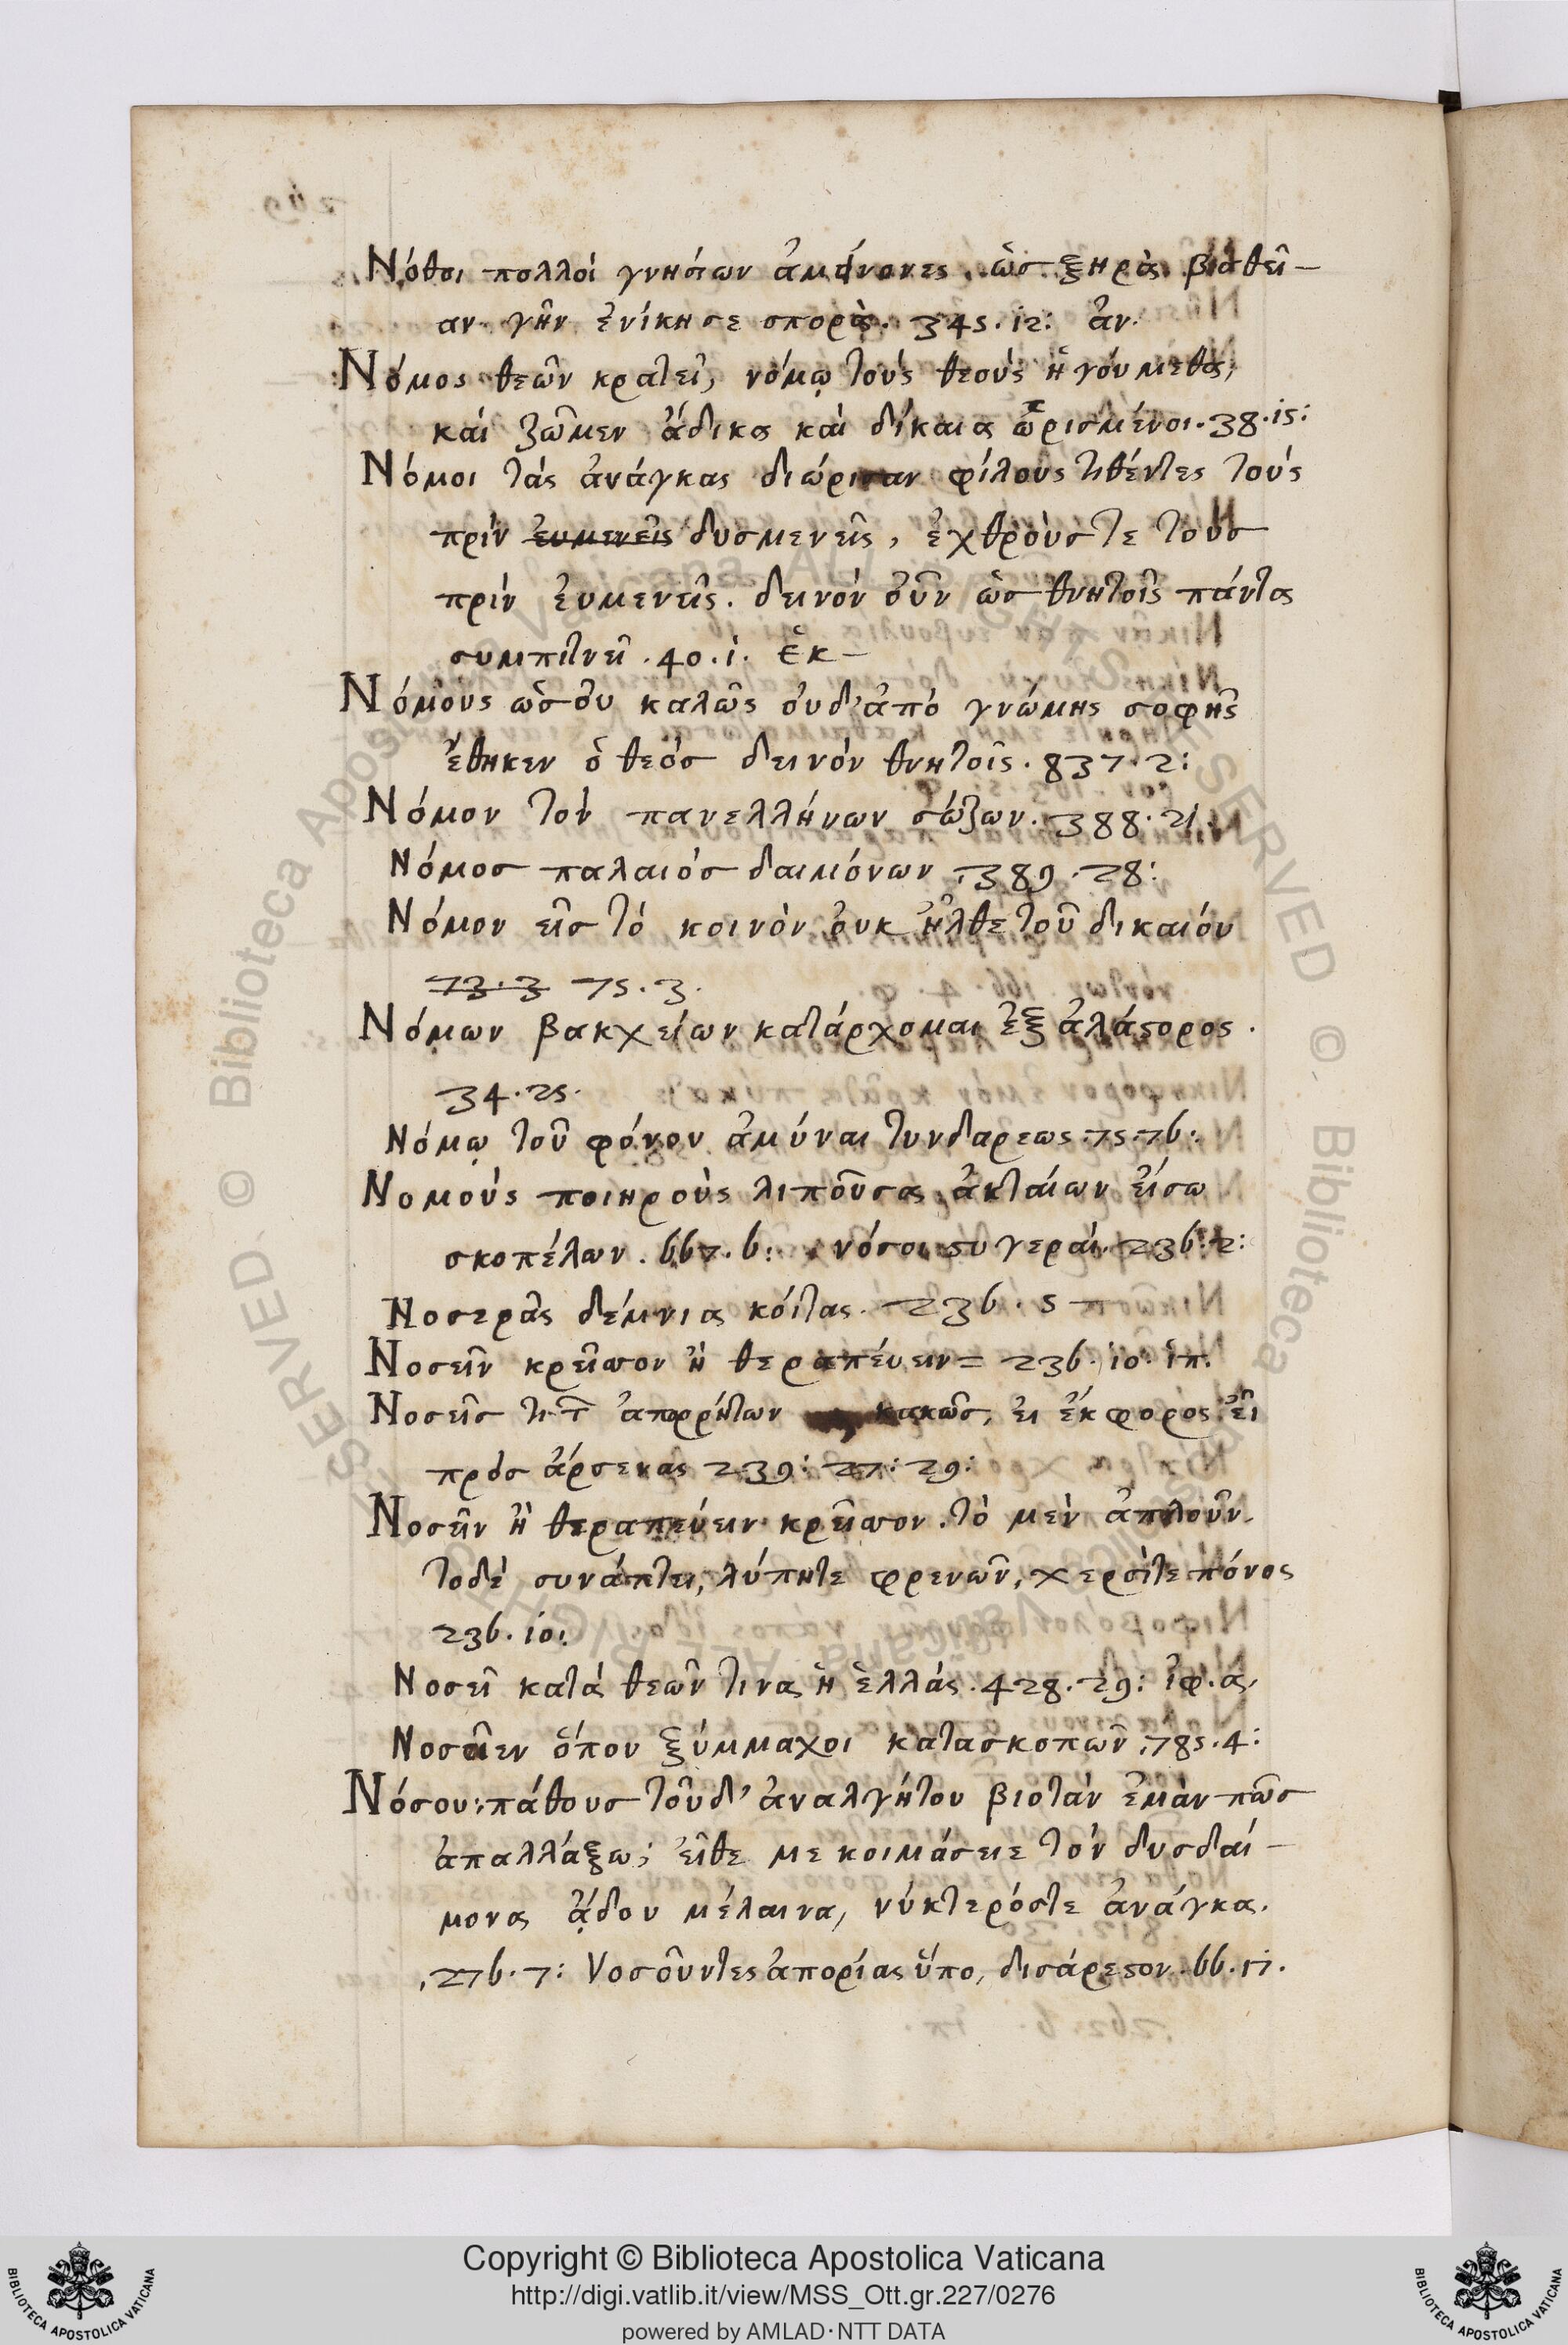 Νόθοι πολλοί γνησίων ἀμείνονες, ὡσ ξηρὰ βαθεῖ-
αν γῆν ἐνίκησε σπορᾷ. 345.12: ἀν.
Νόμος θεῶν κρατεῖ, νόμῳ τοὺς θεοὺς ἡγούμεθα,
καὶ ζῶμεν ἄδικα καὶ δίκαια ὡρισμένοι. 38.15:
Νόμοι τάς ἀνάγκας διώρισαν φίλους τιθέντες τούς
πρίν εὐμενεῖς δυσμενεῖς, ἐχθροὺσ τε τοὺσ
πρίν εὐμενεῖς. δεινόν οὖν ὡσ θνητοῖς πάντα
συμπιτνεῖ. 40.1. ἑκ-
Νόμους ὡσ οὐ καλῶς οὐδ' ἀπό γνώμης σοφῆς
ἔθηκεν ὁ θεόσ δεινόν θνητοῖς. 837.2:
Νόμον τόν πανελλήνων σώζων. 388.21.
Νόμοσ παλαιόσ δαιμόνων. 389.28:
Νόμον εἰσ τό κοινὸν οὐκ ἦλθε τοῦ δικαίου
73.3 75.3.
Νόμων βακχείων κατάρχομαι ἐξ ἀλάστορος.
34.25.
Νόμῳ τοῦ φόνον ἀμύναι τυνδαρεως. 75.76:
Νομούς ποιηροὺς λιποῦσα ἀκταίων εἴσω
σκοπέλων. 667.6: νόσοι στυγεραί. 236.2:
Νοσερᾶς δέμνια κοίτας. 236.5
Νοσεῖν κρεῖσσον ἢ θεραπεύειν = 236.10. ἱπ.
Νοσεῖσ τι τ ἀπορρήτων κακῶσ, εἰ ἔκφορός εἰ
πρόσ ἄρσενας 239: 27: 29:
Νοσεῖν ἢ θεραπεύειν κρεῖσσον. τὸ μὲν ἁπλοῦν.
τοδὲ συνάπτει, λύπητε φρενῶν, χερσίτε πόνος
236.10:
Νοσεῖ κατά θεῶν τινα ἡ ἑλλάς. 428.29: ἰφ. α,
Νοσεῖεν ὅπου ξύμμαχοι κατασκοπῶν. 785.4:
Νόσου: πάθουσ τοῦδ' ἀναλγήτου βιοτάν ἐμὰν πῶσ
ἀπαλλάξω; εἴθε με κοιμάσειε τόν δυσδαί-
μονα ᾅδου μέλαινα, νύκτερόστε ἀνάγκα.
276.7: νοσοῦντες ἀπορίας ὕπο, δισάρεστον. 66.17.
Copyright © Biblioteca Apostolica Vaticana
http://digi.vatlib.it/view/MSS_Ott.gr.227/0276
powered by AMLAD·NTT DATA